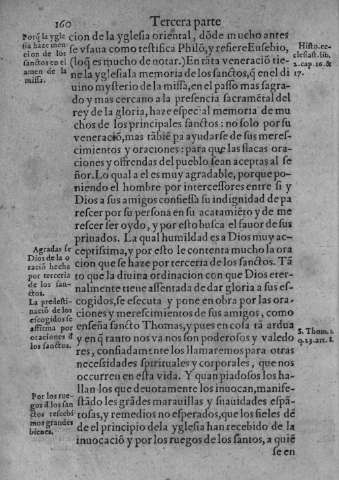 160
Tercera parte
Porq̃ la ygle
sia haze men
cion de los
sanctos en el
amen de la
missa.
cion de la yglesia oriental, dõde mucho antes
se vsaua como testifica Philõ, y refiere Eusebio,
(loq̃ es mucho de notar.) En tãta veneraciõ tie-
ne la yglesia la memoria de los sanctos, q̃ en el di
uino mysterio de la missa, en el passo mas sagra-
do y mas cercano a la presencia sacramẽtal del
rey de la gloria, haze especial memoria de mu
chos de los principales sanctos: no solo por su
veneraciõ, mas tãbiẽ pa ayudarse de sus meres-
cimientos y oraciones: para que las flacas ora-
ciones y offrendas del pueblo sean aceptas al se
ñor. Lo qual a el es muy agradable, porque po-
niendo el hombre por intercessores entre si y
Dios a sus amigos confiessa su indignidad de pa
rescer por su persona en su acatamiẽto y de me
rescer ser oydo, y por esto busca el fauor de sus
priuados. La qual humildad es a Dios muy ac-
ceptissima, y por esto le contenta mucho la ora
cion que se haze por terceria de los sanctos. Tã
to que la diuina ordinacion con que Dios eter-
nalmente tiene assentada de dar gloria a sus es-
cogidos, se executa y pone en obra por las ora-
ciones y merescimientos de sus amigos, como
enseña sancto Thomas, y pues en cosa tã ardua
y en q̃ tanto nos va nos son poderosos y valedo
res, confiadamente los llamaremos para otras
necessidades spirituales y corporales, que nos
occurren en esta vida. Y quan piadosos los ha-
llan los que deuotamente los inuocan, manife-
stãdo les grãdes marauillas y suauidades espã-
tosas, y remedios no esperados, que los fieles dẽ
de el principio dela yglesia han recebido de la
inuocaciõ y por los ruegos de los santos, a quiẽ
se en
Histo. ec-
clesiast. lib.
2. cap. 16. &
17.
Agradas se
Dios de la o
raciõ hecha
por terceria
de los san-
ctos.
La predesti-
naciõ de los
escogidos se
affirma por
oraciones d̃
los sanctos.
S. Thom. 1.
q. 23. art. 8.
Por los rue-
gos d̃ los san
ctos rescebi
mos grandes
bienes.